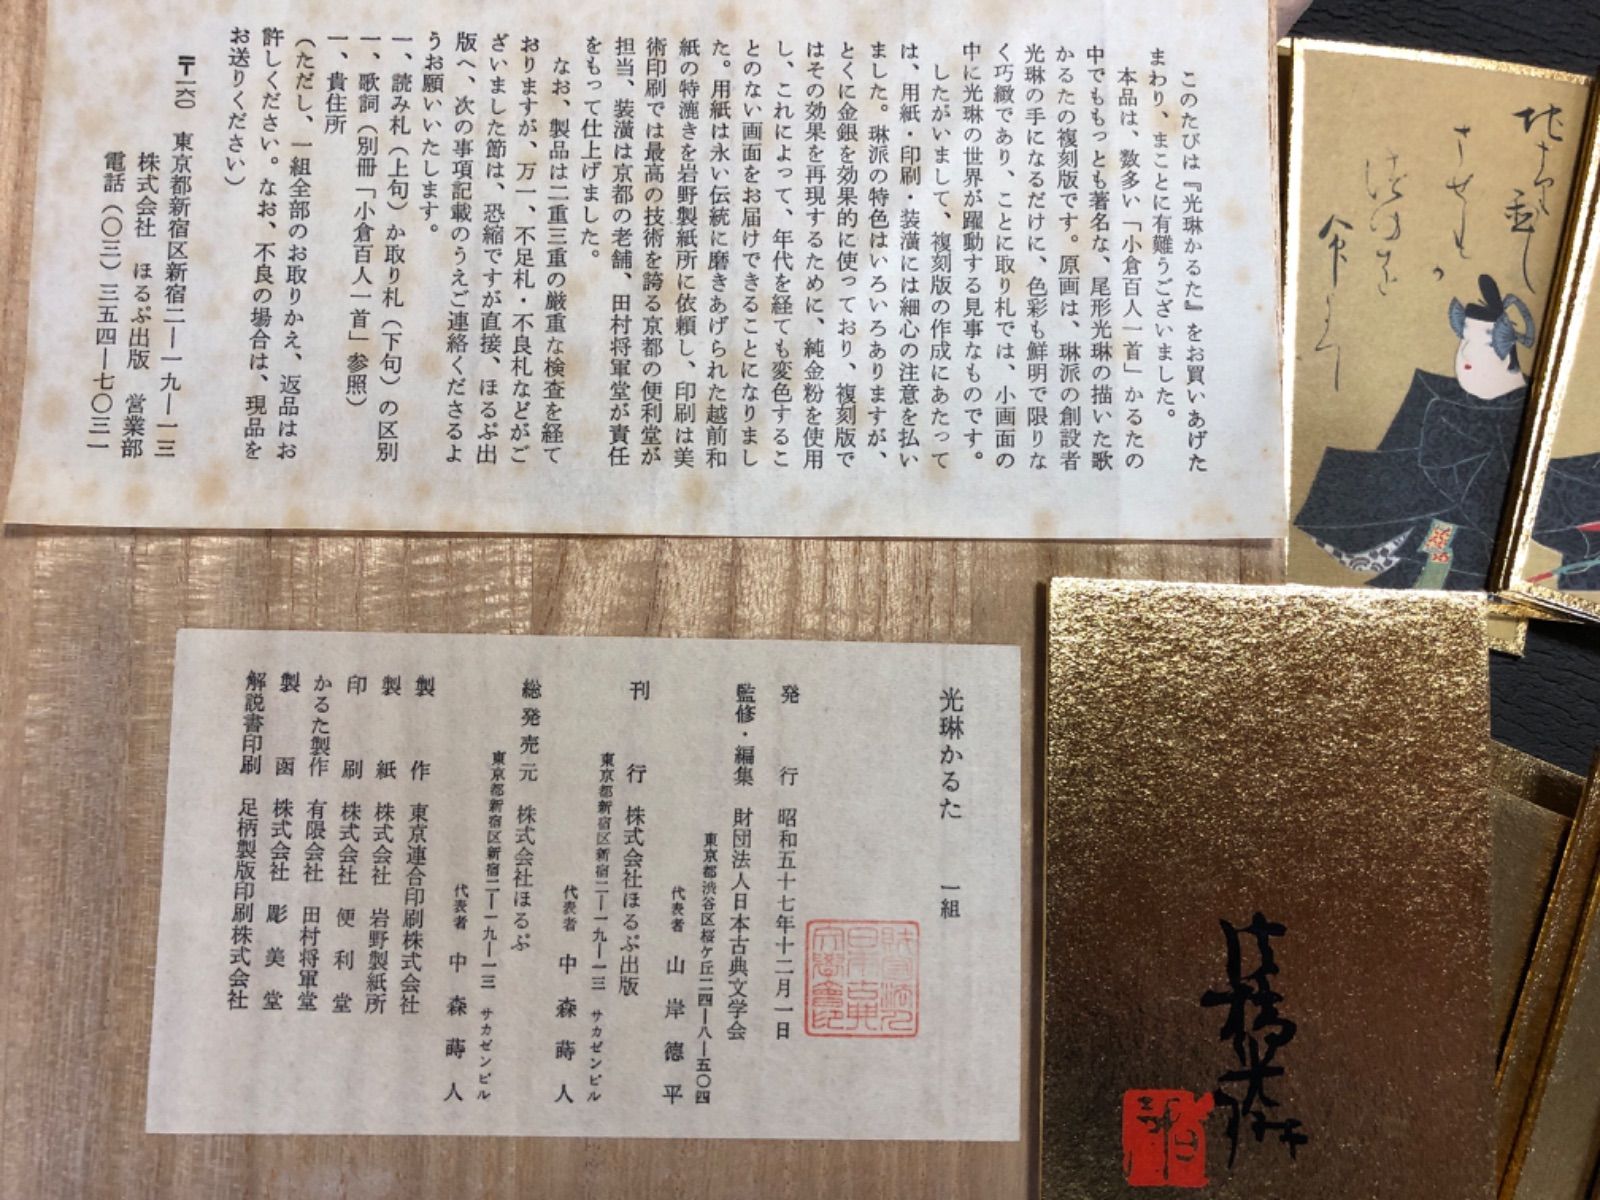 このたびは『光琳かるた』をお買いあげた
まわり、まことに有難うございました。
本品は、数多い「小倉百人一首」かるたの
中でももっとも著名な、尾形光琳の描いた歌
かるたの複刻版です。原画は、琳派の創設者
光琳の手になるだけに、色彩も鮮明で限りな
く巧緻であり、ことに取り札では、小画面の
中に光琳の世界が躍動する見事なものです。
したがいまして、複刻版の作成にあたって
は、用紙・印刷・装潢には細心の注意を払い
ました。琳派の特色はいろいろありますが、
とくに金銀を効果的に使っており、複刻版で
はその効果を再現するために、純金粉を使用
し、これによって、年代を経ても変色するこ
とのない画面をお届けできることになりまし
た。用紙は永い伝統に磨きあげられた越前和
紙の特漉きを岩野製紙所に依頼し、印刷は美
術印刷では最高の技術を誇る京都の便利堂が
担当、装潢は京都の老舗、田村将軍堂が責任
をもって仕上げました。
なお、製品は二重三重の厳重な検査を経て
おりますが、万一、不足札・不良札などがご
ざいました節は、恐縮ですが直接、ほるぷ出
版へ、次の事項記載のうえご連絡くださるよ
うお願いいたします。
一、読み札（上句）か取り札（下句）の区別
一、歌詞（別冊「小倉百人一首」参照）
一、貴住所
（ただし、一組全部のお取りかえ、返品はお
許しください。なお、不良の場合は、現品を
お送りください）
〒一六〇 東京都新宿区新宿二―一九―一三
株式会社 ほるぷ出版 営業部
電話（〇三）三五四―七〇三一
光琳かるた 一組
発行 昭和五十七年十二月一日
監修・編集 財団法人日本古典文学会
東京都渋谷区桜ケ丘二四―八―五〇四
代表者 山岸徳平
刊行 株式会社ほるぷ出版
東京都新宿区新宿二―一九―一三 サカゼンビル
代表者 中森蒔人
総発売元 株式会社ほるぷ
東京都新宿区新宿二―一九―一三 サカゼンビル
代表者 中森蒔人
製作 東京連合印刷株式会社
製紙 株式会社 岩野製紙所
印刷 株式会社 便利堂
かるた製作 有限会社 田村将軍堂
製函 株式会社 彫美堂
解説書印刷 足柄製版印刷株式会社